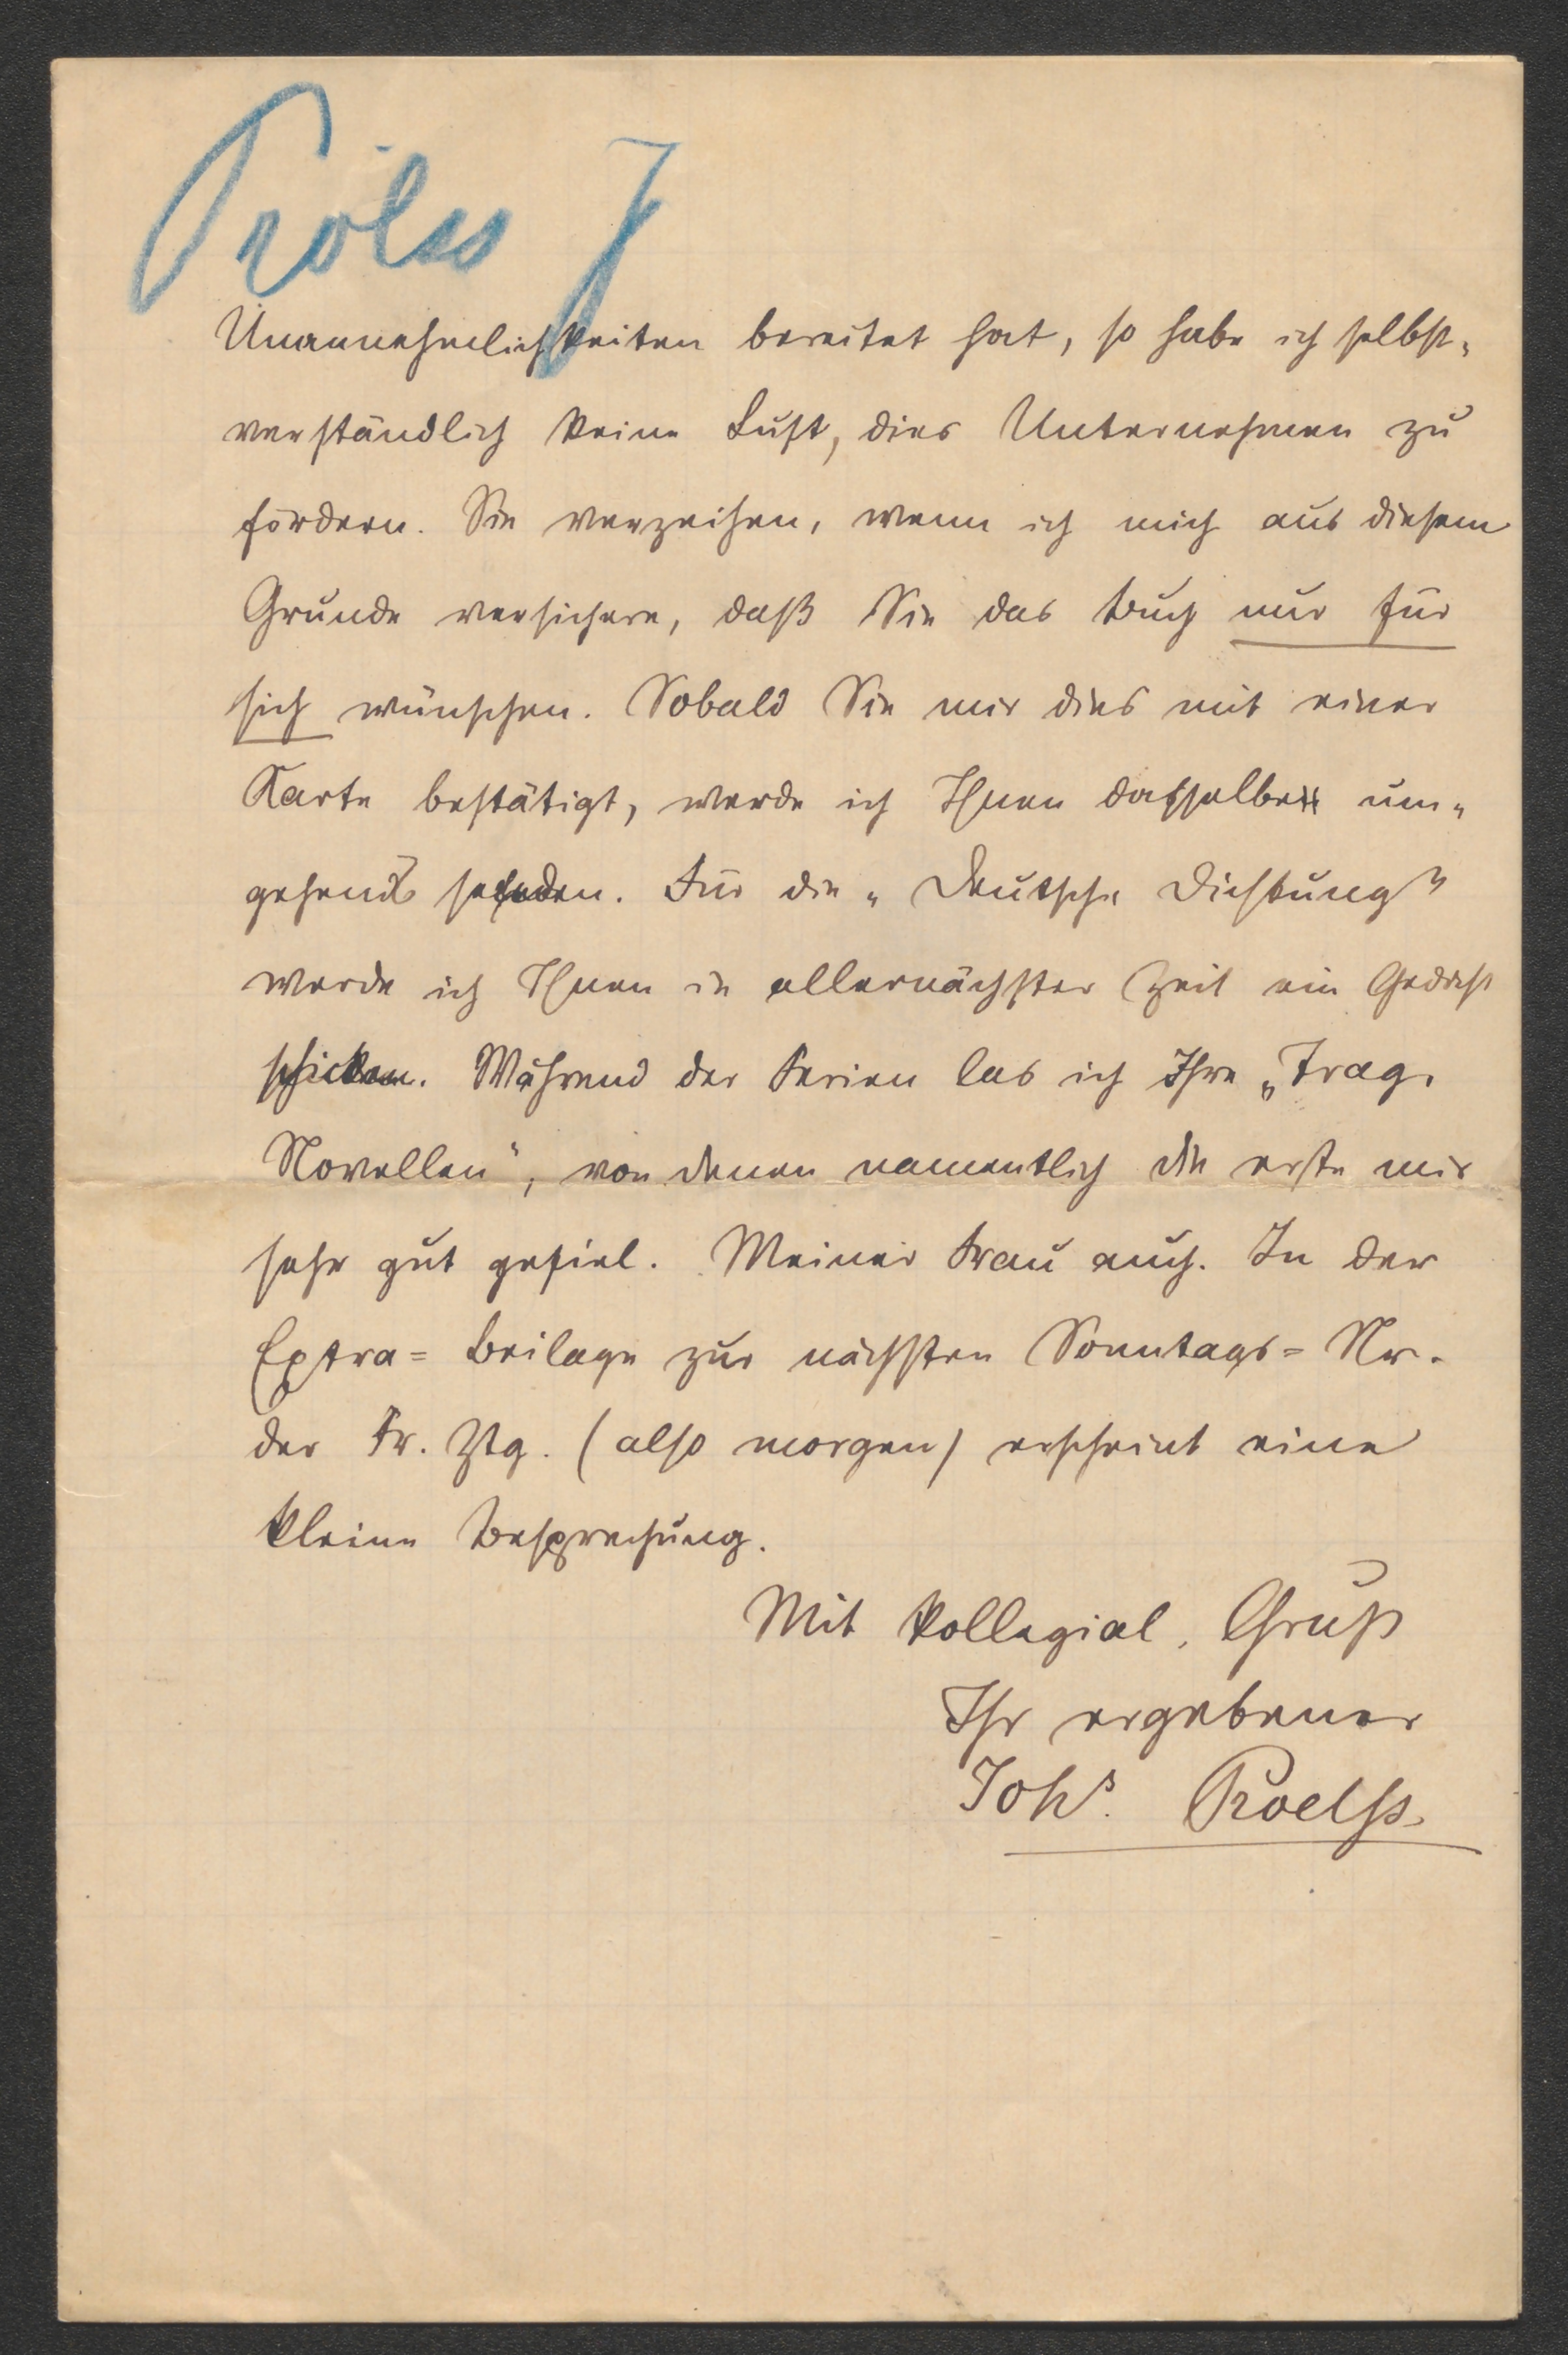 Prölss J
Unannehmlichkeiten bereitet hat, so habe ich selbst-
verständlich keine Lust, dies Unternehmen zu
fördern. Sie verzeihen, wenn ich mich aus diesem
Grunde versichere, daß Sie das Buch nur für
sich wünschen. Sobald Sie mir dies mit einer
Karte bestätigt, werde ich Ihnen dasselbe um-
gehend senden. Für die „Deutsche Dichtung"
werde ich Ihnen in allernächster Zeit ein Gedicht
schicken. Während der Ferien las ich Ihre „Trag.
Novellen", von denen namentlich die erste mir
sehr gut gefiel. Meiner Frau auch. In der
Extra= Beilage zur nächsten Sonntags= Nr.
der Fr. Ztg. (also morgen) erscheint eine
kleine Besprechung.
Mit kollegial. Gruß
Ihr ergebener
Johs. Proelß.